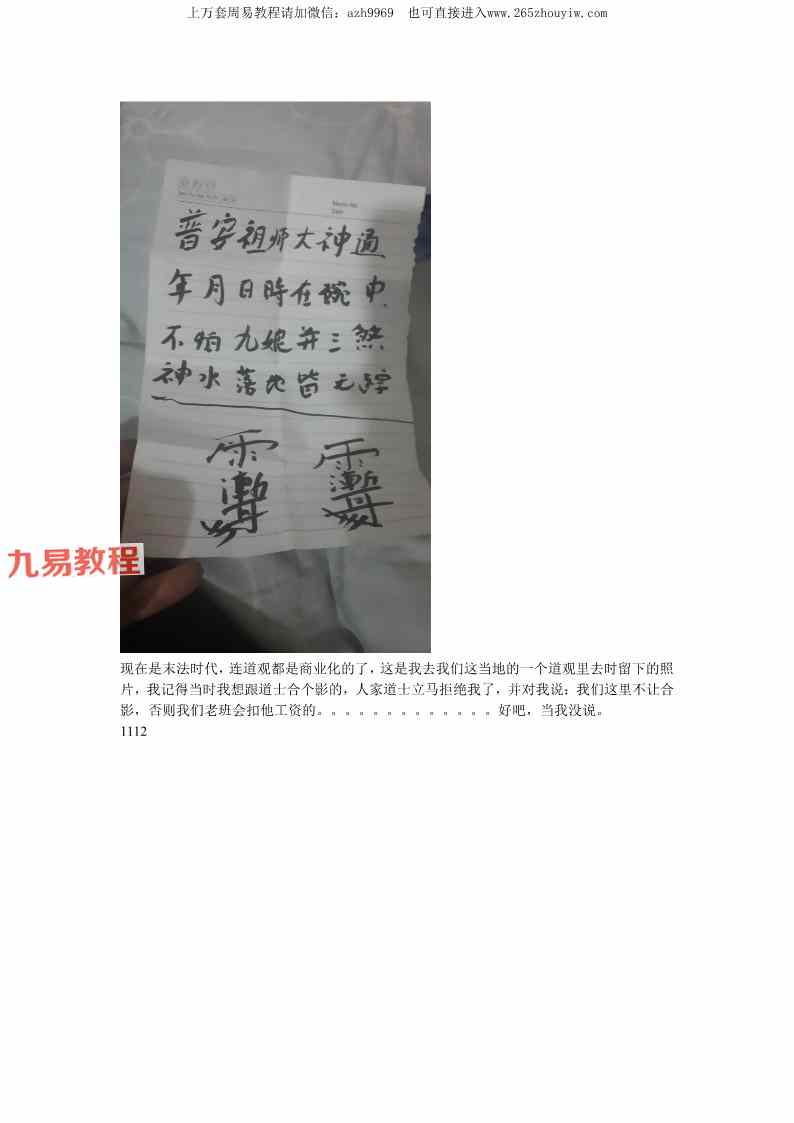 上万套周易教程请加微信：azh9969 也可直接进入www.265zhouyiw.com
普安祖师大神通
年月日時在碗中
不怕九娘并三煞
神水落地皆无踪
九易教程
现在是末法时代，连道观都是商业化的了，这是我去我们这当地的一个道观里去时留下的照
片，我记得当时我想跟道士合个影的，人家道士立马拒绝我了，并对我说：我们这里不让合
影，否则我们老班会扣他工资的。。。。。。。。。。。。。好吧，当我没说。
1112